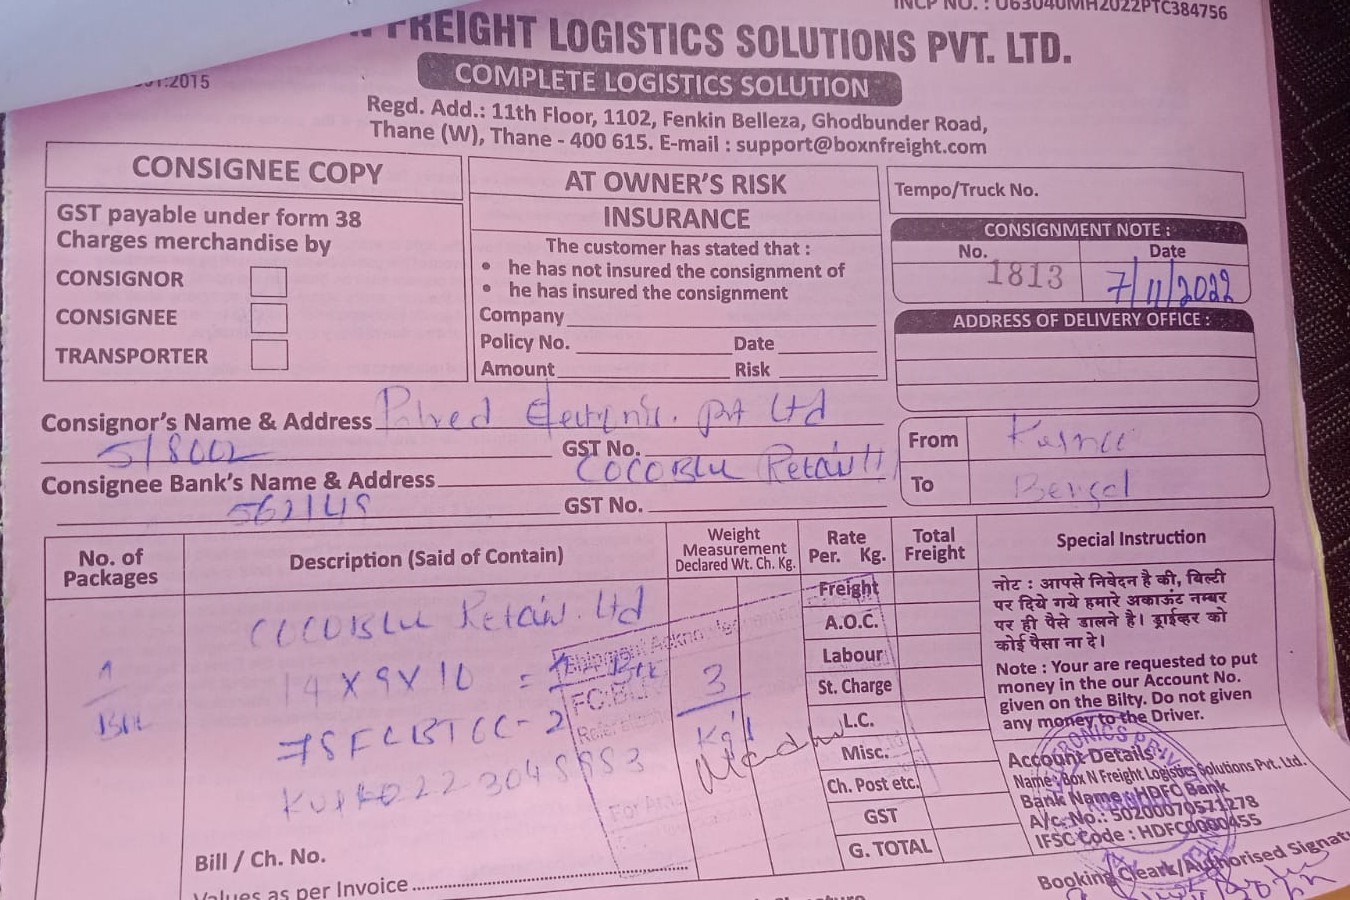 INCP NO. : U63040MH2022PTC384756
FREIGHT LOGISTICS SOLUTIONS PVT. LTD.
:2015
COMPLETE LOGISTICS SOLUTION
Regd. Add.: 11th Floor, 1102, Fenkin Belleza, Ghodbunder Road,
Thane (W), Thane - 400 615. E-mail : support@boxnfreight.com
CONSIGNEE COPY
GST payable under form 38
Charges merchandise by
CONSIGNOR
CONSIGNEE
TRANSPORTER
AT OWNER'S RISK
INSURANCE
The customer has stated that :
• he has not insured the consignment of
• he has insured the consignment
Company
Policy No. Date
Amount Risk
Tempo/Truck No.
CONSIGNMENT NOTE :
No. Date
1813 7/11/2022
ADDRESS OF DELIVERY OFFICE :
Consignor's Name & Address Pvt Ltd
518002 GST No.
Consignee Bank's Name & Address COCOBLU Retail
562149 GST No.
From
To
No. of Packages
Description (Said of Contain)
Weight Measurement Declared Wt. Ch. Kg.
Rate Per. Kg.
Total Freight
Special Instruction
1
COCOBLU Retail. Ltd
14 X 9 X 10 =
3
Freight
A.O.C.
Labour
St. Charge
L.C.
Misc.
Ch. Post etc.
GST
G. TOTAL
नोट : आपसे निवेदन है की, बिल्टी
पर दिये गये हमारे अकाऊंट नम्बर
पर ही पैसे डालने है। ड्राईव्हर को
कोई पैसा ना दे।
Note : Your are requested to put
money in the our Account No.
given on the Bilty. Do not given
any money to the Driver.
Account Details
Name: Box N Freight Logistics Solutions Pvt. Ltd.
Bank Name : HDFC Bank
A/c. No.: 50200070571278
IFSC Code : HDFC0000455
Bill / Ch. No.
Values as per Invoice
Booking Cleark/Authorised Signat